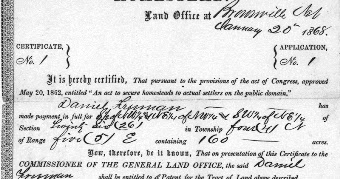 HOMESTEAD.
Land Office at Brownville Neb
January 20th 1868.
CERTIFICATE, APPLICATION,
No. 1 No. 1
It is hereby certified, That pursuant to the provisions of the act of Congress, approved
May 20, 1862, entitled "An act to secure homesteads to actual settlers on the public domain,"
Daniel Freeman has
made payment in full for of
Section Twenty Six (26) in Township four (4) N
of Range five (5) E containing 160 acres.
Now, therefore, be it known, That on presentation of this Certificate to the
COMMISSIONER OF THE GENERAL LAND OFFICE, the said Daniel
Freeman shall be entitled to a Patent for the Tract of Land above described